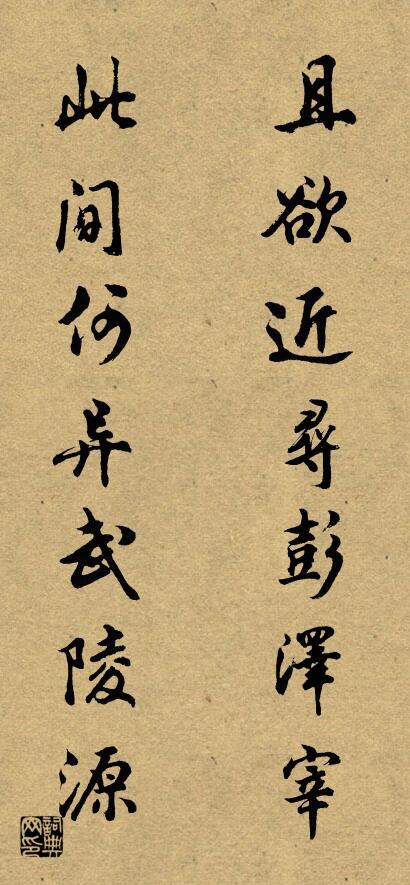 且欲近尋彭澤宰
此间何异武陵源
詞典网印